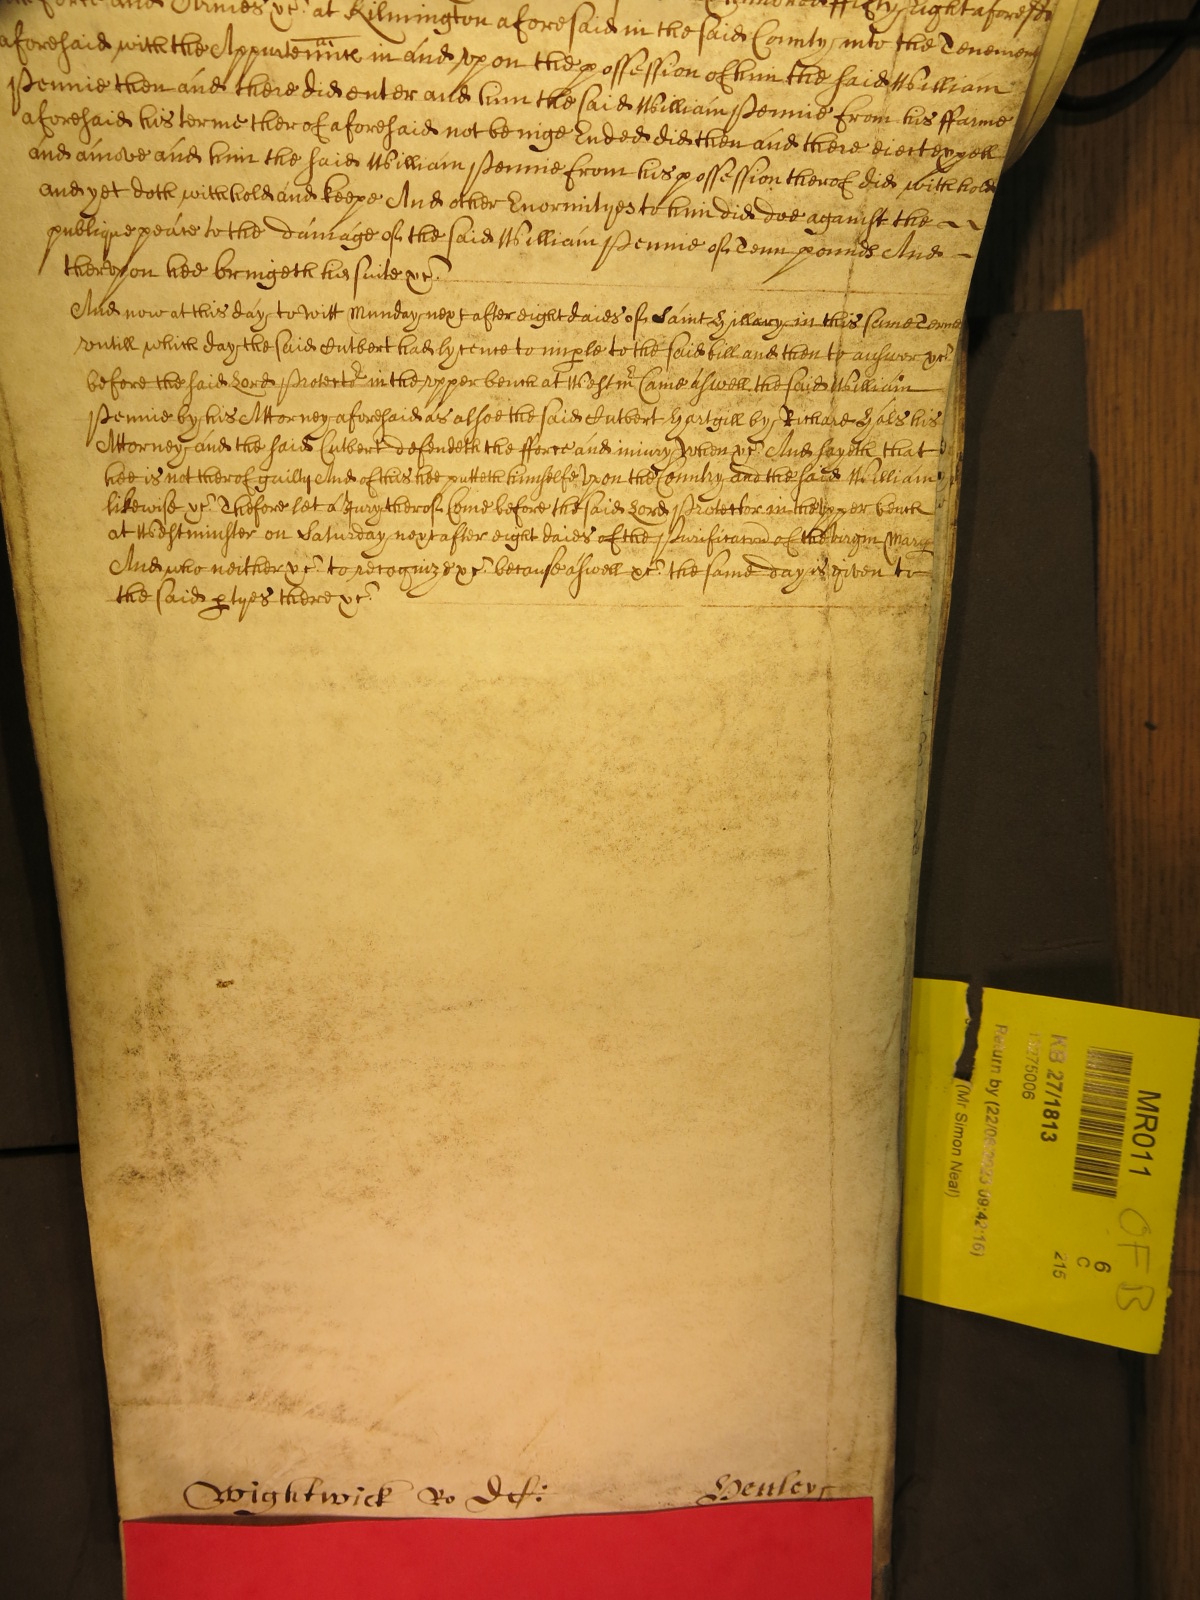 force and Armes &c at Kilmington aforesaid in the said County, into the Tenement
aforesaid with the Appurtenñce in and vpon the possession of him the said William
Pennie then and there did enter and him the said William Pennie from his ffarme
aforesaid his terme therof aforesaid not beinge Ended did then and there eiect expell
and amove and him the said William Pennie from his possession therof did withhold
and yet doth withhold and keepe And other Enormityes to him did doe against the
publique peace to the damage of the said William Pennie of Tenn pounds And
thervpon hee bringeth his suite &c
And now at this day, to witt Munday next after eight daies of Saint Hillary in this same Terme
vntill which day the said Cutbert had lycence to imple to the said bill and then to answer &c
before the said Lord Protector in the vpper bench at Westmr Came aswell the said William
Pennie by his Attorney aforesaid as alsoe the said Cutbert Hartgill by Richard Hals his
Attorney, and the said Cutbert defendeth the fforce and iniury when &c And sayeth that
hee is not therof guilty And of this hee putteth himselfe Vpon the Country and the said William
likewise &c Thefore let a Jury therof Come before the said Lord Protector in the vpper bench
at Westminster on Saturday next after eight daies of the Purification of the virgin Mary
And who neither &c to recognize &c because aswell &c the same day is given to
the said ptyes there &c
Wightwick Ro Def:
Henley
MR011
OFB
6
C
215
KB 27/1813
Return by (22/06/2023 09:42:16)
(Mr Simon Neal)